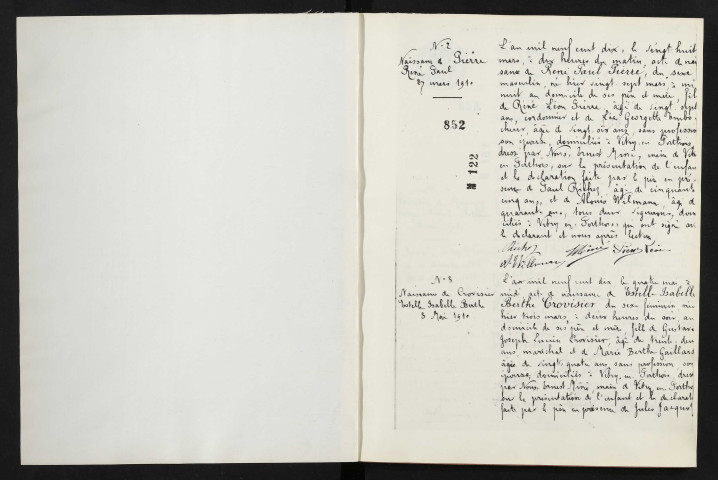 N° 2
Naissance de Pierre
René Paul
27 mars 1910
852
122
L'an mil neuf cent dix, le vingt huit
mars, à dix heures du matin, acte de nais
sance de René Paul Pierre, du sexe
masculin, né hier vingt sept mars à mi
nuit au domicile de ses père et mère, fils
de René Léon Pierre, âgé de vingt sept
ans, cordonnier et de Léa Georgette
âgée de vingt six ans, sans profession
son épouse, domiciliés à Vitry en Perthois
dressé par Nous, Ernest Miné, maire de Vitry
en Perthois, sur la présentation de l'enfant
et la déclaration faite par le père en pré
sence de Paul Richez, âgé de cinquante
cinq ans, et de Wilmann, âgé de
quarante ans, tous deux vignerons, domi
ciliés à Vitry en Perthois, qui ont signé avec
le déclarant et nous après lecture
N° 3
Naissance de Crovisier
Estelle Isabelle Berthe
3 Mai 1910
L'an mil neuf cent dix le quatre mai à
midi acte de naissance de Estelle Isabelle
Berthe Crovisier du sexe féminin née
hier trois mai à deux heures du soir, au
domicile de ses père et mère, fille de Gustave
Joseph Lucien Crovisier, âgé de trente deux
ans, maréchal et de Marie Berthe Gaillard
âgée de vingt quatre ans sans profession son
épouse, domiciliés à Vitry en Perthois, dressé
par Nous Ernest Miné maire de Vitry en Perthois
sur la présentation de l'enfant et la déclaration
faite par le père en présence de Jules Jacquot